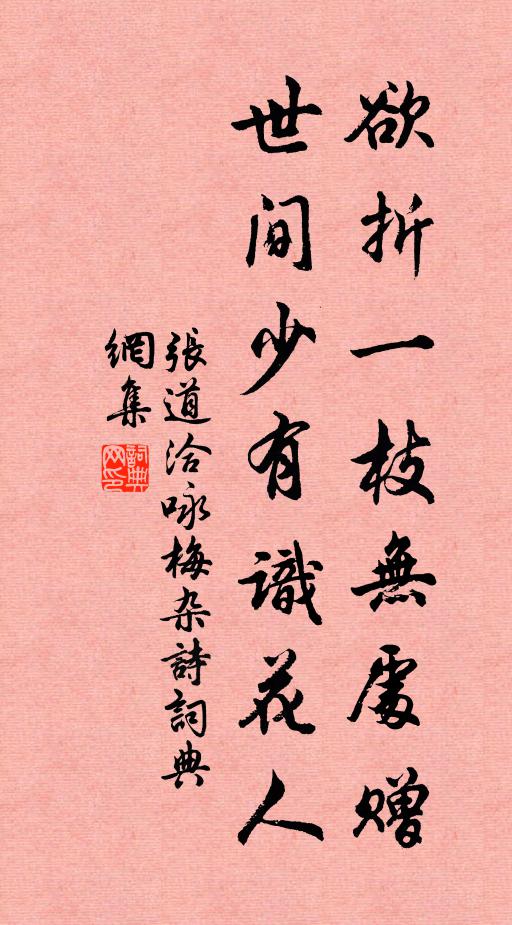 欲折一枝無處赠
世間少有識花人
張道洽咏梅杂詩詞典
網集
詞典
网印